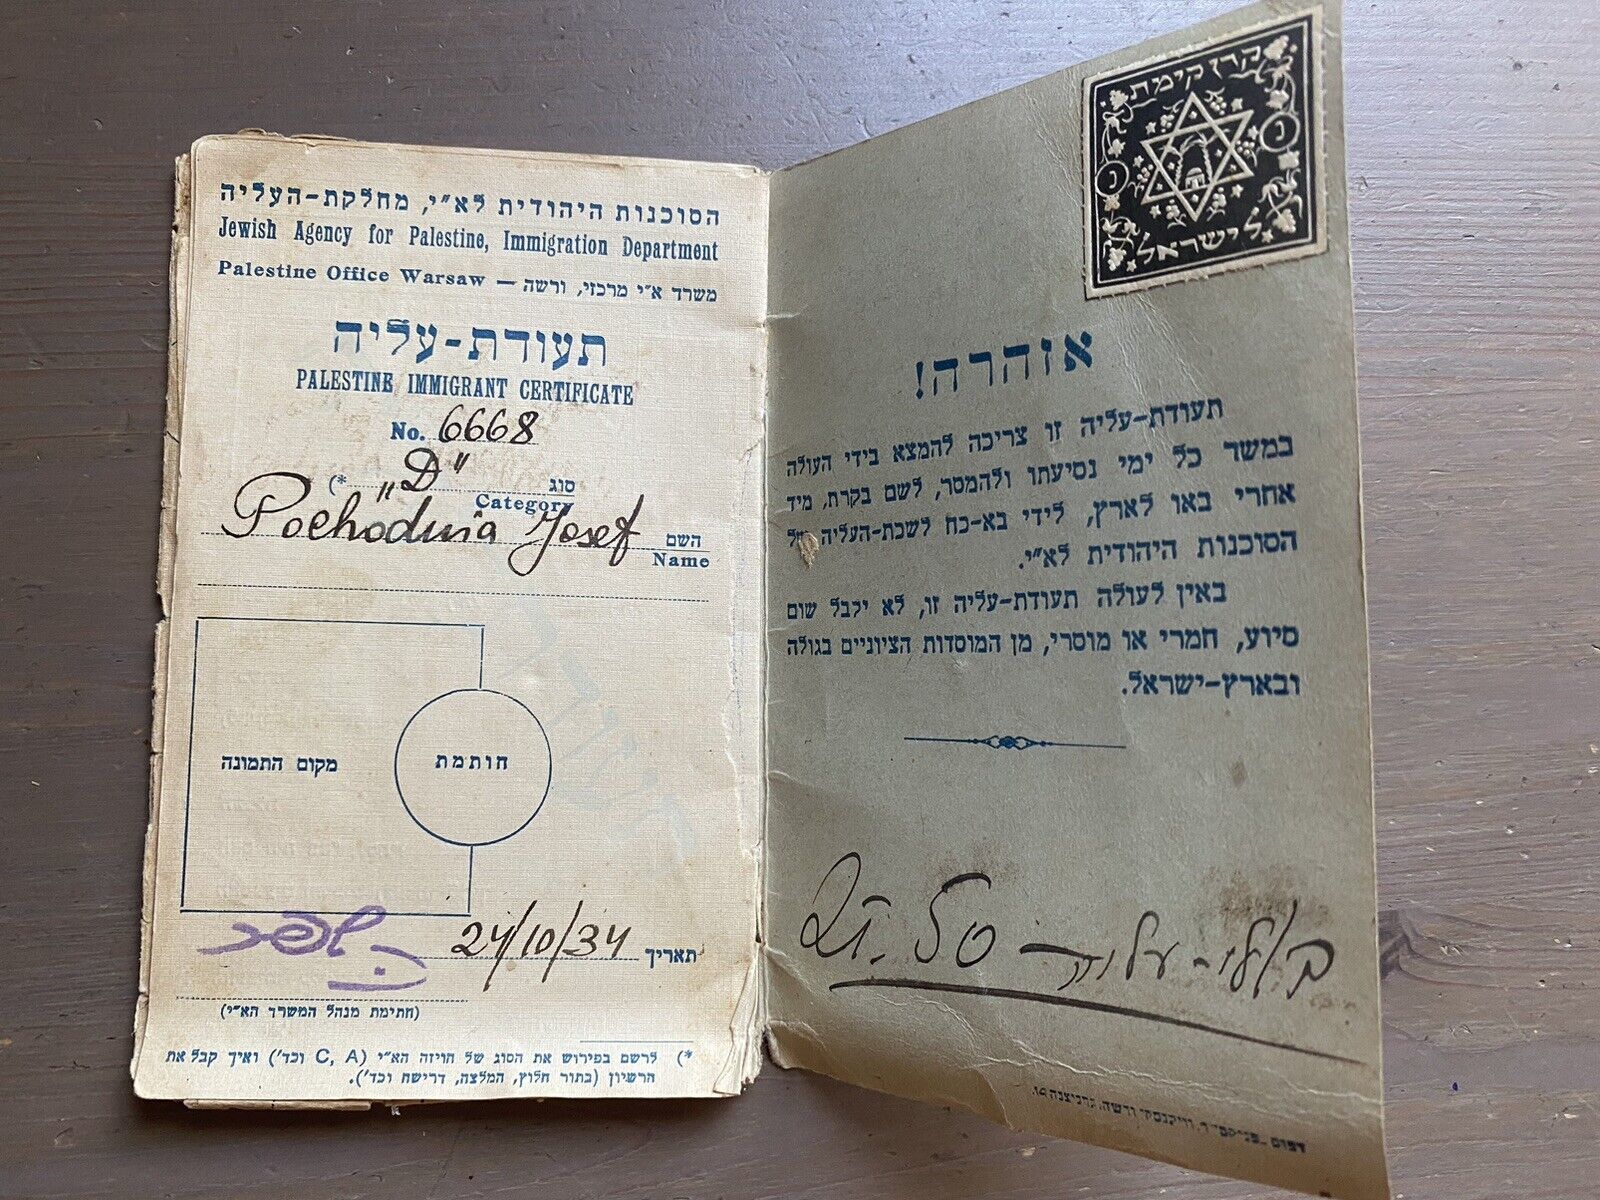 הסוכנות היהודית לא"י, מחלקת-העליה
Jewish Agency for Palestine, Immigration Department
Palestine Office Warsaw — משרד א"י מרכזי, ורשה
תעודת-עליה
PALESTINE IMMIGRANT CERTIFICATE
No. 6668
סוג "D" (*
Category
השם Pochodnia Josef
Name
מקום התמונה
חותמת
תאריך 24/10/34
(חתימת מנהל המשרד הא"י)
*) לרשם בפירוש את הסוג של הויזה הא"י (C, A וכד') ואיך קבל את
הרשיון (בתור חלוץ, המלצה, דרישה וכד').
קרן קימת
לישראל
אזהרה!
תעודת-עליה זו צריכה להמצא בידי העולה
במשך כל ימי נסיעתו ולהמסר, לשם בקרת, מיד
אחרי באו לארץ, לידי בא-כח לשכת-העליה של
הסוכנות היהודית לא"י.
באין לעולה תעודת-עליה זו, לא יקבל שום
סיוע, חמרי או מוסרי, מן המוסדות הציוניים בגולה
ובארץ-ישראל.